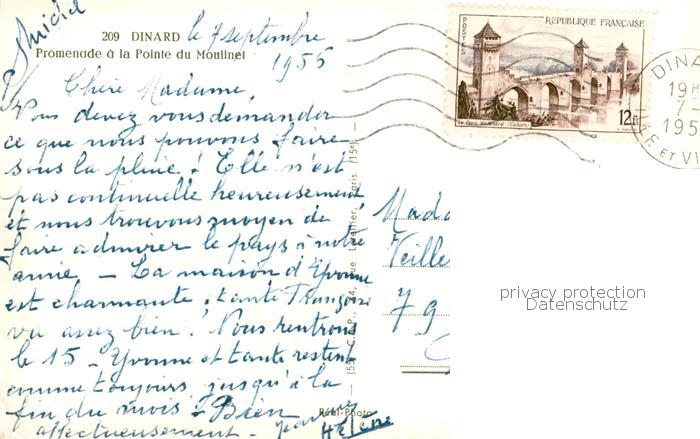 Michel
209 DINARD
Promenade à la Pointe du Moulinet
le 7 septembre
1955
Chère Madame,
Vous devez vous demander
ce que nous pouvons faire
sous la pluie ! Elle n'est
pas continuelle heureusement
et nous trouvons moyen de
faire admirer le pays à notre
amie — La maison d'Yvonne
est charmante, tante Françoise
va assez bien. Nous rentrons
le 15 — Yvonne et tante restent
comme toujours jusqu'à la
fin du mois — Bien
affectueusement —
Hélène
Réal-Photo
Paris (15e)
RÉPUBLIQUE FRANÇAISE
POSTES
Le Pont Valentré (Cahors)
12f
DINA
19H
7-
195
ET VI
Mada
Veille
79
privacy protection
Datenschutz